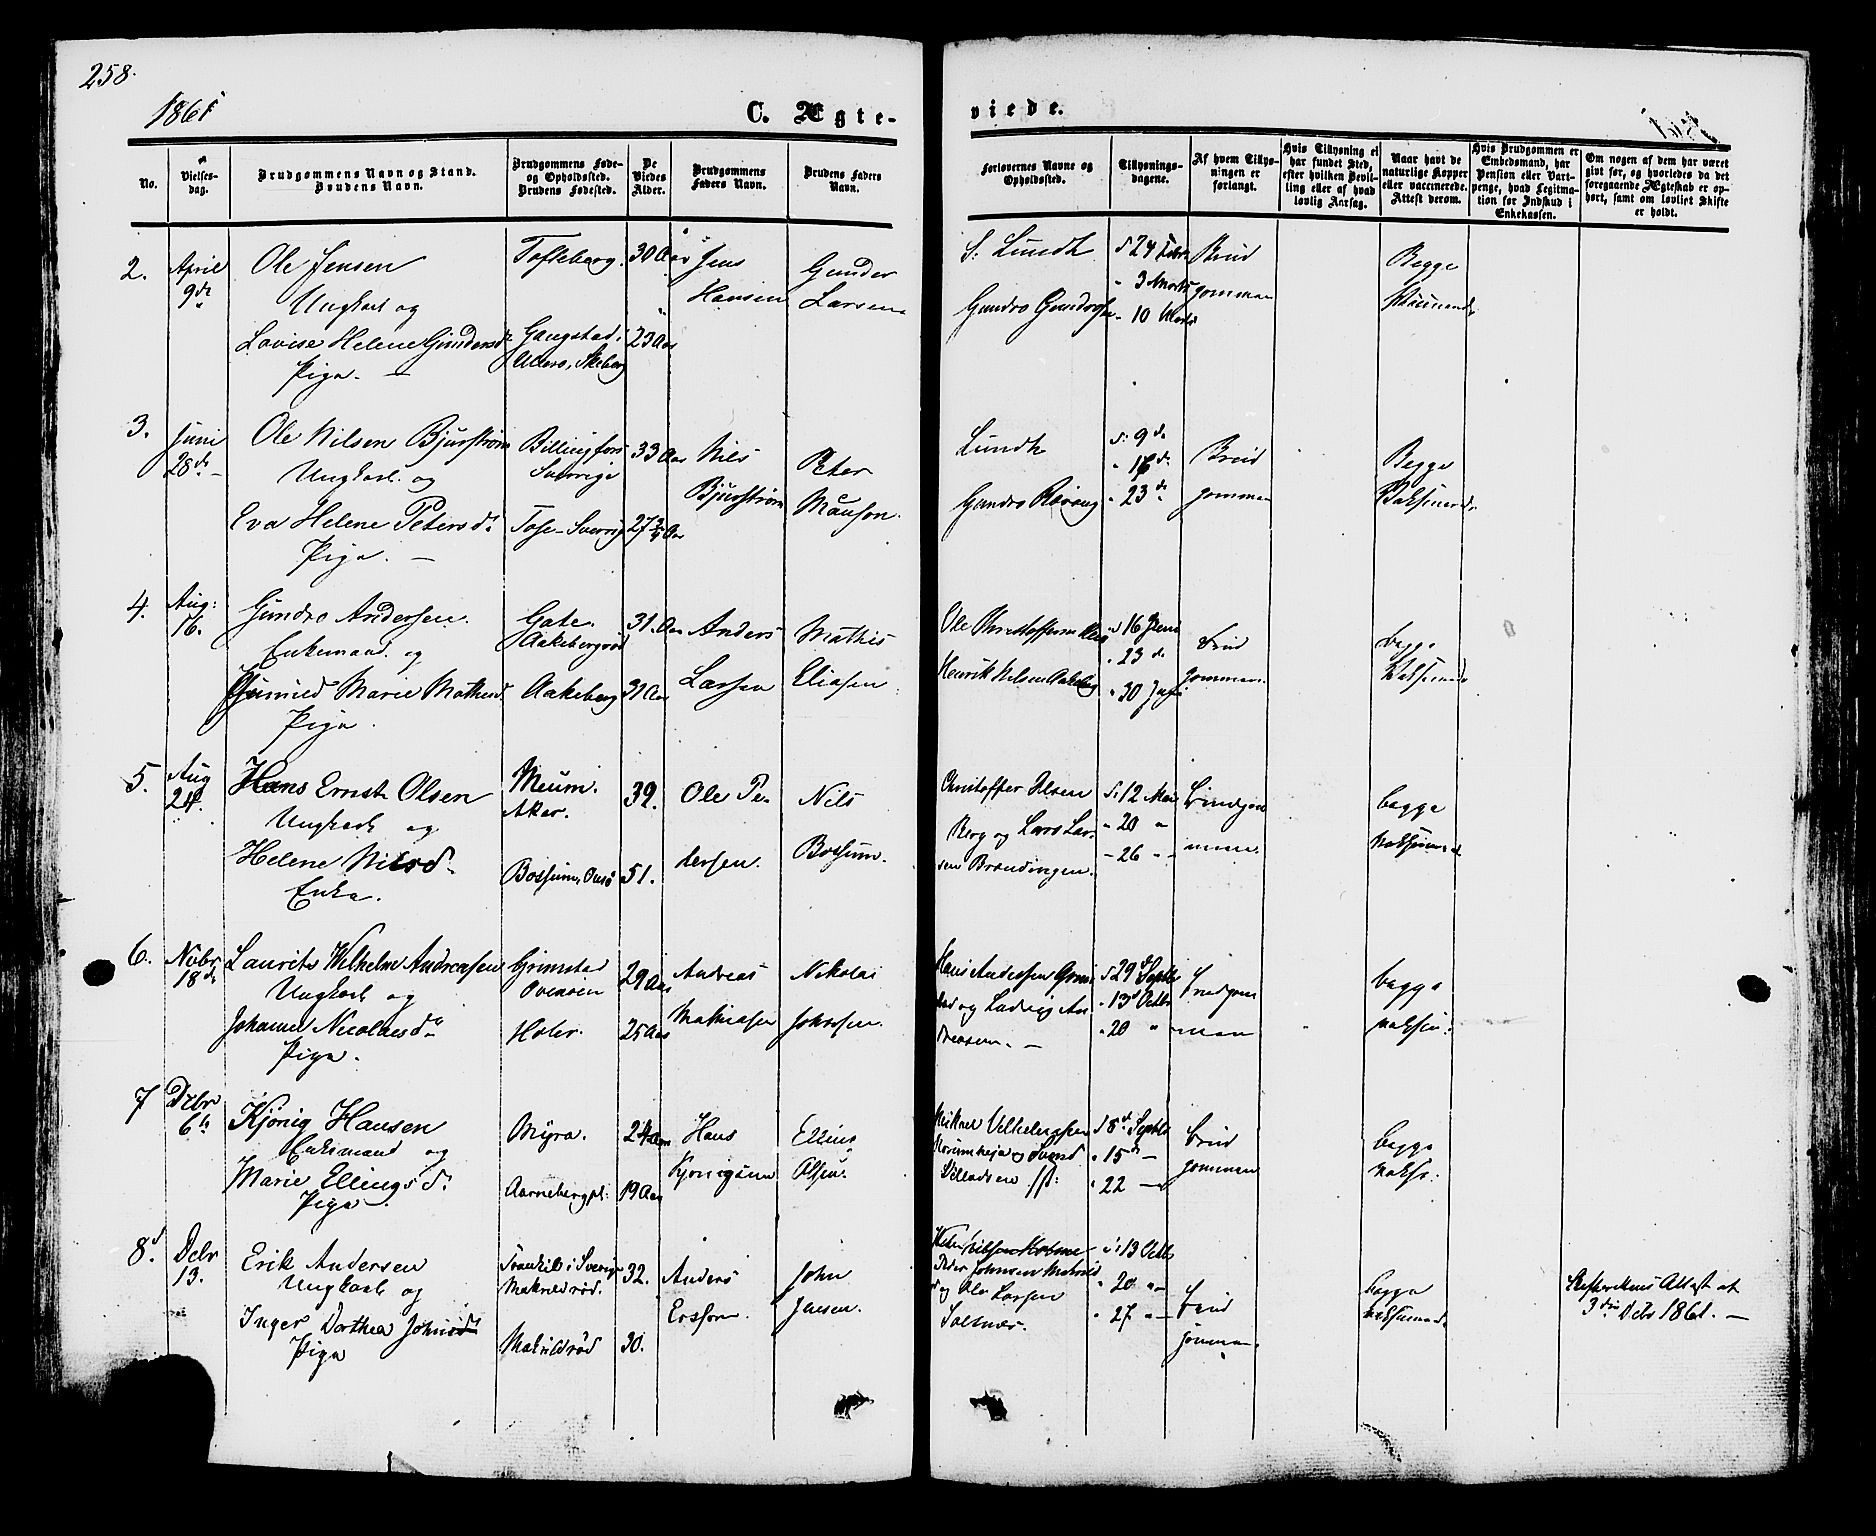 258.
1861
C. Ægte-
viede.
No.
Vielses-
dag.
Brudgommens Navn og Stand.
Brudens Navn.
Brudgommens Føde-
og Opholdssted.
Brudens Fødested.
De
Viedes
Alder.
Brudgommens
Faders Navn.
Brudens Faders
Navn.
Forlovernes Navne og
Opholdssted.
Tillysnings-
dagene.
Af hvem Tillys-
ningen er
forlangt.
Hvis Tillysning ei
har fundet Sted,
efter hvilken Bevil-
ling eller af hvad
lovlig Aarsag.
Naar havt de
naturlige Kopper
eller vaccinerede.
Attest derom.
Hvis Brudgommen er
Embedsmand, har
Pension eller Vart-
penge, hvad Legitima-
tion for Indskud i
Enkekassen.
Om nogen af dem har været
gift før, og hvorledes da det
foregaaende Ægteskab er op-
hørt, samt om lovligt Skifte
er holdt.
2.
April
9de
Ole Jensen
Ungkarl og
Lovise Helene Gundersdr
Pige. —
Tofteberg.
Gangstad i
Skeberg
30 Aar
23 Aar
Jens
Hansen
Gunder
Larsen
S. Lundh
d. 24 Febr
" 3 Marts
" 10 Marts
Brud
gommen
Begge
3.
Juni
28de
Ole Nilsen Bjurstrøm
Ungkarl. og
Eva Helene Petersd.
Pige. —
Billingsfors
Sverrige
Tose-Sverrig
33 Aar
Nils
Bjurstrøm
Peter
Manson.
Lundh
d. 9 de
" 16 de
" 23 de
Brud
gommen
Begge
4.
Aug:
16.
Gundro Andersen.
Enkemand. og
Marie Mathisd.
Pige.
Gate.
Aakebergrød
Aakeberg
31. Aar
31 Aar
Anders
Larsen
Mathis
Eliasen
Henrik Nilsen Aakeberg
d 16 Juni
" 23 de
" 30 Juni
Brud
gommen.
begge
5.
Aug
24.
Hans Ernst Olsen
Ungkarl og
Helene Nilsd.
Enke.
Meum.
Aker.
Bossum, Onsø
39.
51.
Ole Pe-
dersen.
Nils
Bossum.
Christoffer Olsen
Berg og Lars Lar-
sen Brendingen.
d. 12 Mai
" 20 "
- 26 - -
begge
6.
Novbr
18de
Laurits Wilhelm Andreasen
Ungkarl og
Johanne Nicolaesdr
Pige.
Grimstad
Holer.
29 Aar
25 Aar
Andreas
Mathiasen
Nikolai
Johnsen.
Hans Andersen Grim-
stad og Ludvig An-
dreasen. —
d 29 Septbr
" 13 Octbr
" 20 "
Brudgom
men
begge
7
Debr
6te
Kjønig Hansen
Enkemand og
Marie Ellingsd.
Pige.
Myra.
Aarnebergpl:
24 Aar
19 Aar
Hans
Elling
Olsen.
d 8 de Septbr
" 15 de —
" 22 —
Brud
gommen
begge
8
Debr
13.
Erik Andersen
Ungkarl og
Inger Dorthea Johnsd
Pige
i Sverige
Makrildrød.
Makrildrød
32.
30.
Anders
John
Jensen.
og Ole Larsen
d: 13 Octb
" 20 "
" 27 " —
Brud
gommen.
begge
Attest af
3die Debr 1861. —